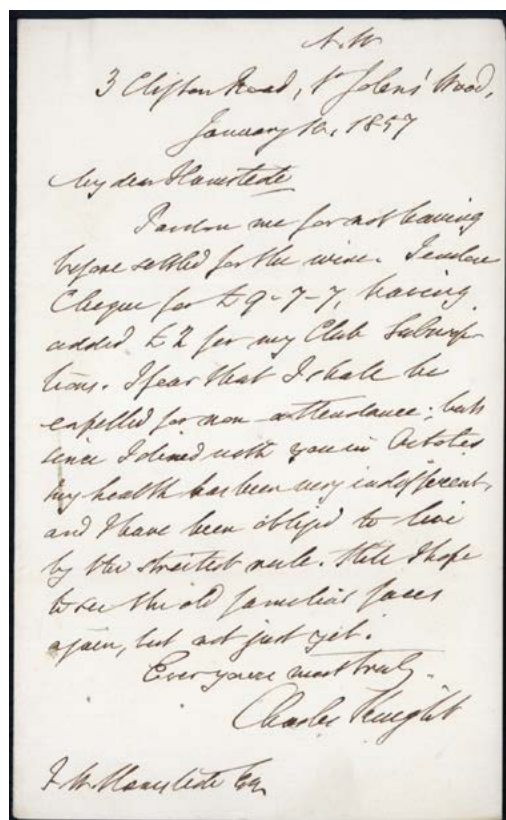 N.W
3 Clifton Road, St Johns' Wood,
January 16, 1857
My dear Hamstede
Pardon me for not having
before settled for the wine. I enclose
Cheque for £9-7-7, having
added £2 for my Club Subscrip-
tions. I fear that I shall be
expelled for non-attendance; but
since I dined with you in October
my health has been very indifferent,
and I have been obliged to live
by the strictest rule. Still I hope
to see the old familiar faces
again, but not just yet.
Ever yours most truly.
Charles Knight
Hamstede Esq